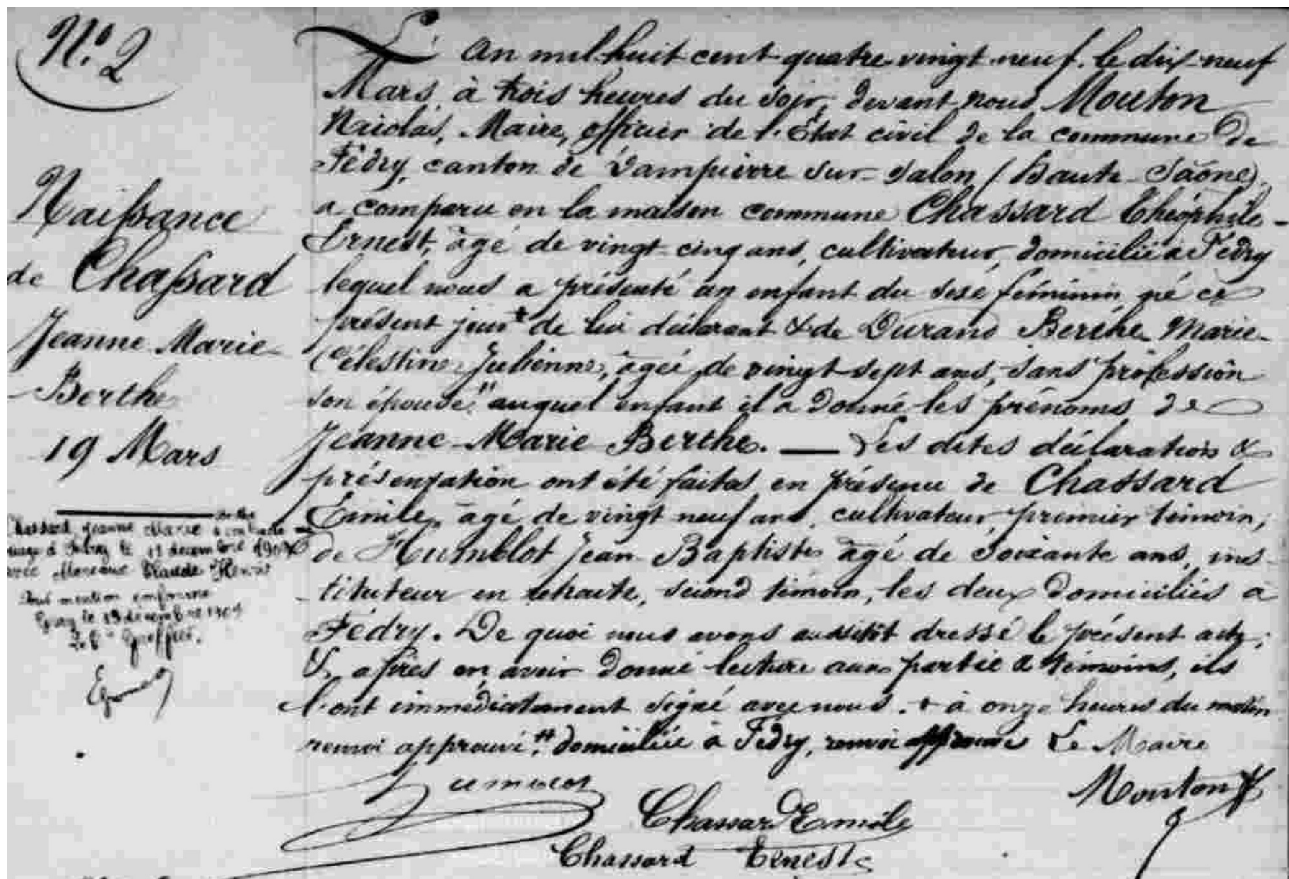 N.º 2
Naissance
de Chassard
Jeanne Marie
Berthe
19 Mars
Chassard Jeanne Marie Berthe a contracté
mariage à Fédry le 11 décembre
avec Claude Henri
Pour mention conforme
Gray le 13 décembre
Greffier,
L'An mil-huit cent quatre vingt neuf, le dix-neuf
Mars, à trois heures du soir, devant nous Mouton
Nicolas, Maire, officier de l'État civil de la commune de
Fédry, canton de Dampierre sur-Salon (Haute-Saône)
a comparu en la maison commune Chassard Théophile-
Ernest, âgé de vingt cinq ans, cultivateur, domicilié à Fédry
lequel nous a présenté un enfant du sexe féminin, né ce
présent jour + de lui déclarant & de Durand Berthe Marie-
Célestine Julienne, âgée de vingt-sept ans, sans profession
son épouse, " auquel enfant il a donné les prénoms de
Jeanne-Marie Berthe. — Les dites déclaration &
présentation ont été faites en présence de Chassard
Emile, âgé de vingt neuf ans, cultivateur, premier témoin;
de Humblot Jean-Baptiste âgé de soixante ans, ins-
tituteur en retraite, second témoin, les deux domiciliés à
Fédry. De quoi nous avons aussitôt dressé le présent acte;
&, après en avoir donné lecture aux partie & témoins, ils
l'ont immédiatement signé avec nous. + à onze heures du matin
renvoi approuvé. " domiciliée à Fédry, renvoi approuvé Le Maire
Humblot
Mouton
Chassard Emile
Chassard Ernest